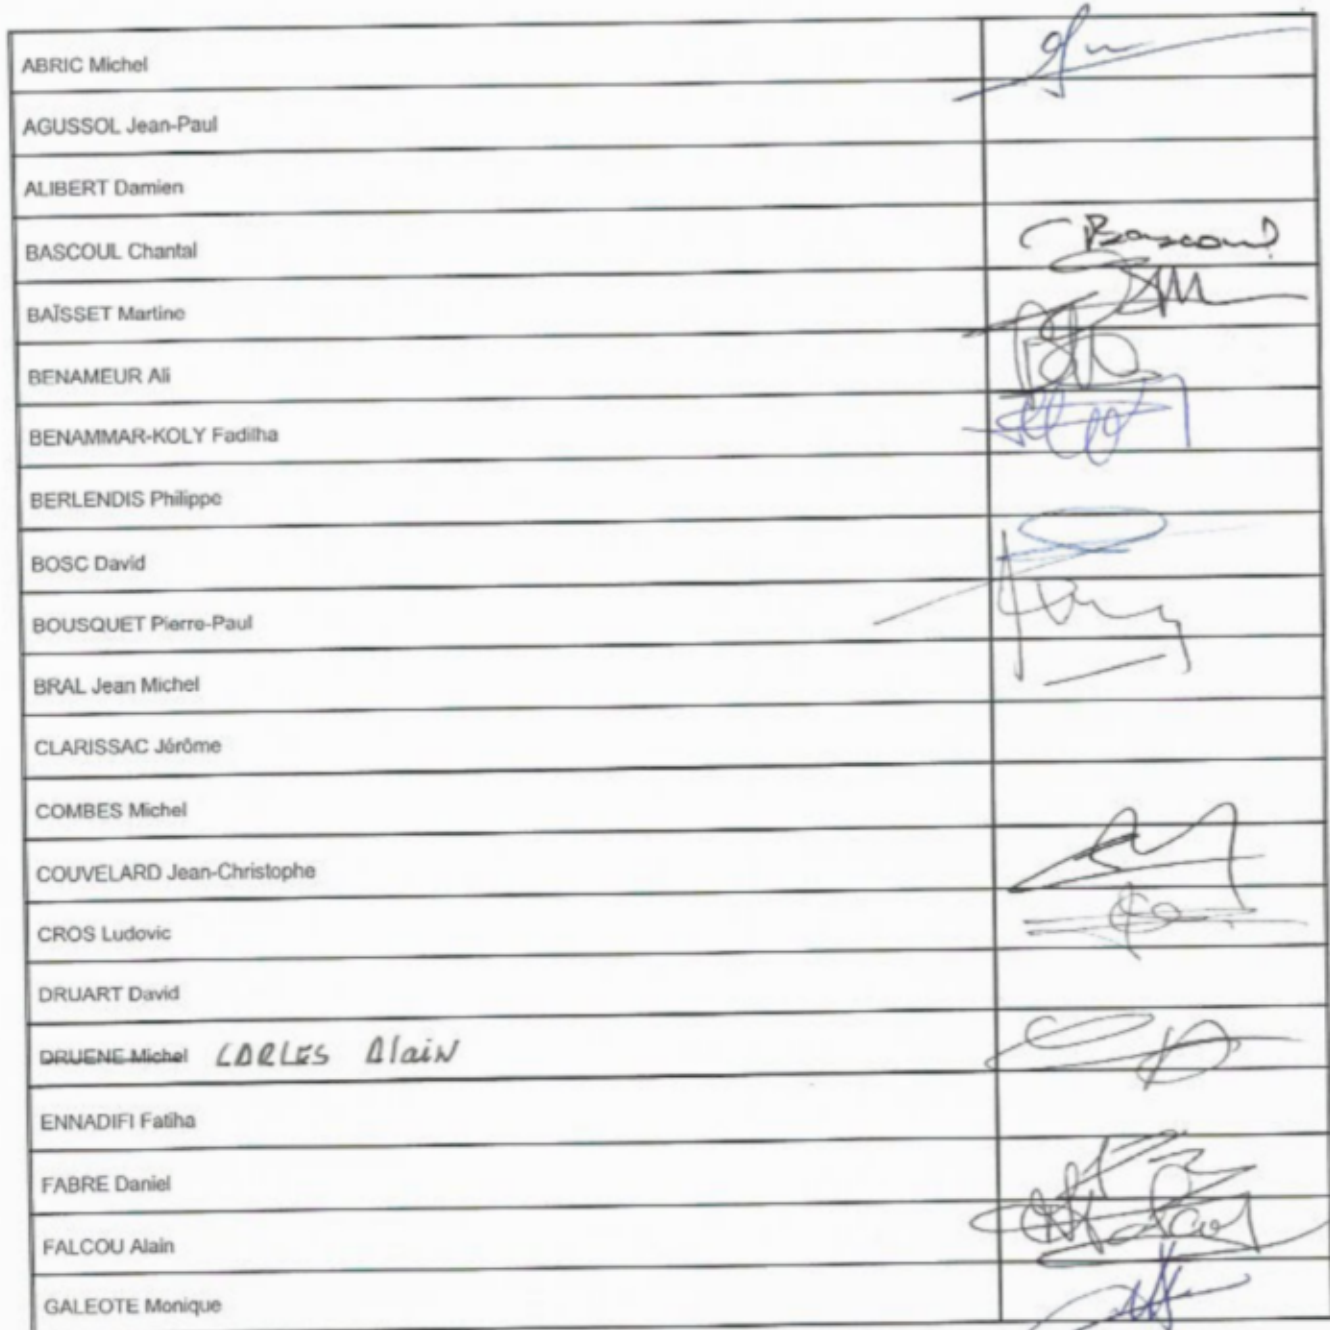 ABRIC Michel
AGUSSOL Jean-Paul
ALIBERT Damien
BASCOUL Chantal
BAÏSSET Martine
BENAMEUR Ali
BENAMMAR-KOLY Fadilha
BERLENDIS Philippe
BOSC David
BOUSQUET Pierre-Paul
BRAL Jean Michel
CLARISSAC Jérôme
COMBES Michel
COUVELARD Jean-Christophe
CROS Ludovic
DRUART David
DRUENE Michel CARLES Alain
ENNADIFI Fatiha
FABRE Daniel
FALCOU Alain
GALEOTE Monique